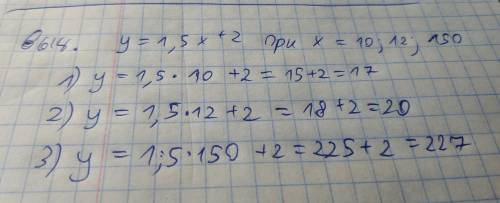 614. y = 1,5x+2 при x = 10; 12; 150
1) y = 1,5·10 +2 = 15+2=17
2) y = 1,5·12 +2 = 18+2=20
3) y = 1;5·150 +2=225+2=227